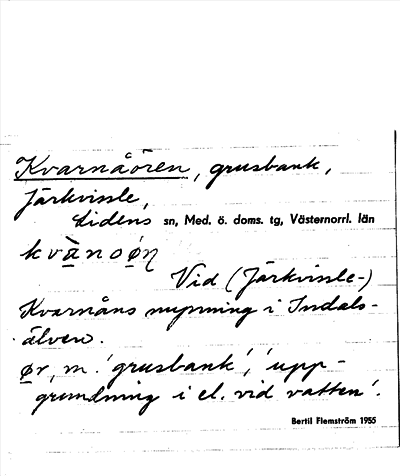 Kvarnåören, grusbank,
Järkvissle,
Lidens sn, Med. ö. doms. tg, Västernorrl. län
Vid (Järkvissle-)
Kvarnåns mynning i Indals-
älven.
ør, m. 'grusbank', 'upp-
grundning i el. vid vatten'.
Bertil Flemström 1955